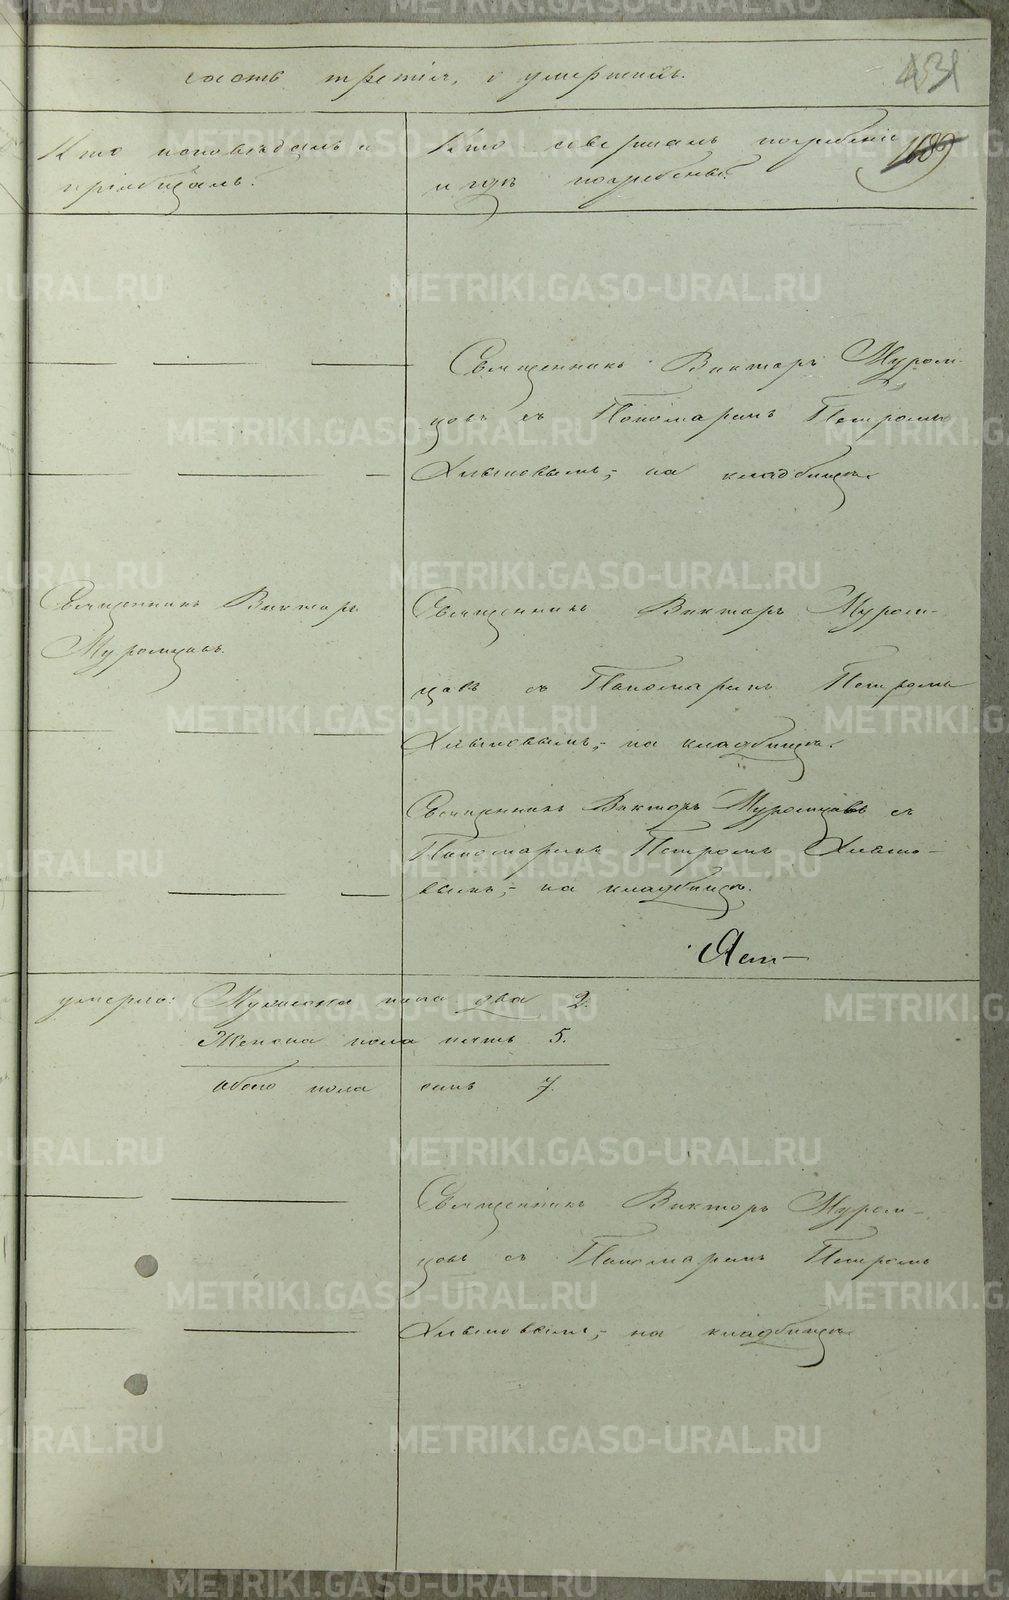 часть третія, о умершихъ.
431
1689
Кто исповѣдалъ и
пріобщалъ.
Кто совершалъ погребеніе
и гдѣ погребены.
Священникъ Викторъ Муром-
цовъ съ Пономаремъ Петромъ
на кладбищѣ.
Священникъ Викторъ
Муромцовъ.
Священникъ Викторъ Муром-
цовъ съ Пономаремъ Петромъ
на кладбищѣ.
Священникъ Викторъ Муромцовъ съ
Пономаремъ Петромъ
на кладбищѣ.
умерло: Мужеска пола два 2.
Женска пола пять 5.
обоего пола семь 7.
Священникъ Викторъ Муром-
цовъ съ Пономаремъ Петромъ
на кладбищѣ
METRIKI.GASO-URAL.RU